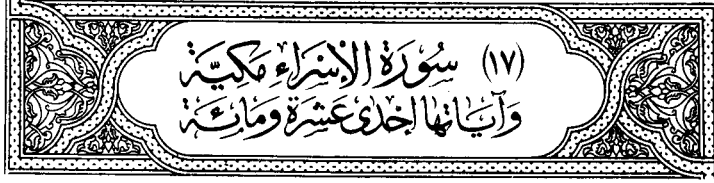 (١٧) سُورَةُ الْإِسْرَاءِ مَكِيَّة
وَآيَاتُهَا إِحْدَىٰ عَشْرَةَ وَمِائَة